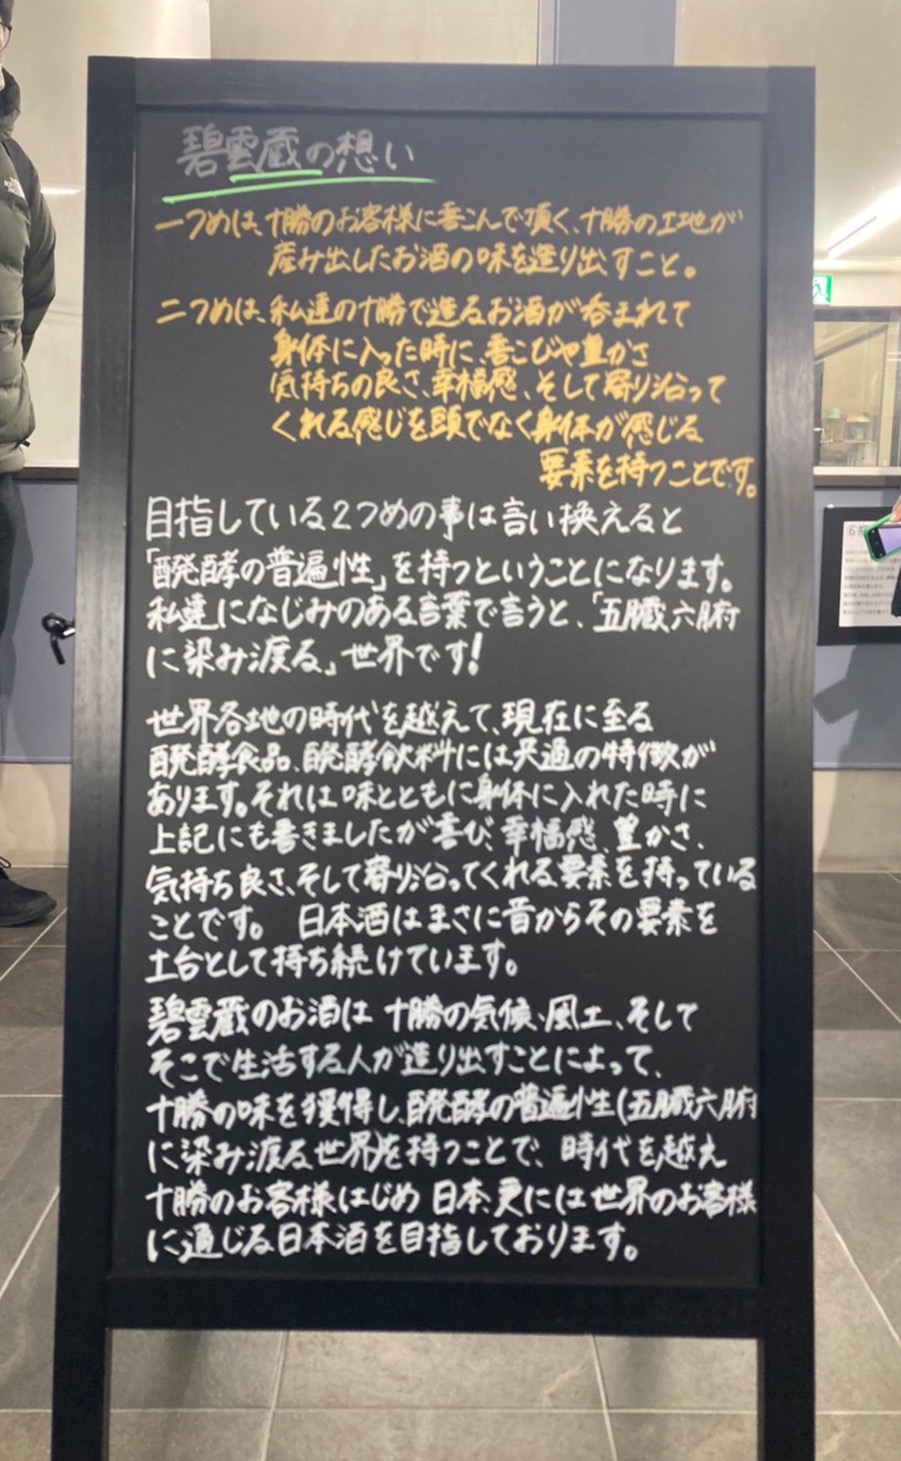 碧雲蔵の想い
一つめは、十勝のお客様に喜こんで頂く、十勝の土地が
産み出したお酒の味を造り出すこと。
二つめは、私達の十勝で造るお酒が呑まれて
身体に入った時に、喜こびや豊かさ
気持ちの良さ、幸福感、そして寄り沿って
くれる感じを頭でなく身体が感じる
要素を持つことです。
目指している2つめの事は言い換えると
「醗酵の普遍性」を持つということになります。
私達になじみのある言葉で言うと、「五臓六腑
に染み渡る」世界です!
世界各地の時代を越えて、現在に至る
醗酵食品、醗酵飲料には共通の特徴が
あります。それは味とともに身体に入れた時に
上記にも書きましたが喜び、幸福感、豊かさ、
気持ち良さ、そして寄り沿ってくれる要素を持っている
ことです。 日本酒はまさに昔からその要素を
土台として持ち続けています。
碧雲蔵のお酒は 十勝の気候、風土、そして
そこで生活する人が造り出すことによって、
十勝の味を獲得し、醗酵の普遍性(五臓六腑
に染み渡る世界)を持つことで、時代を越え
十勝のお客様はじめ 日本、更には世界のお客様
に通じる日本酒を目指しております。